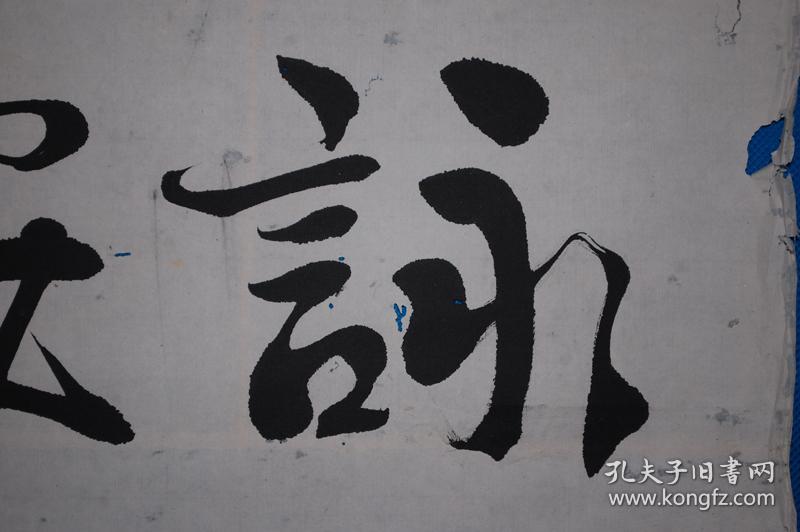 詠
孔夫子旧書网
www.kongfz.com